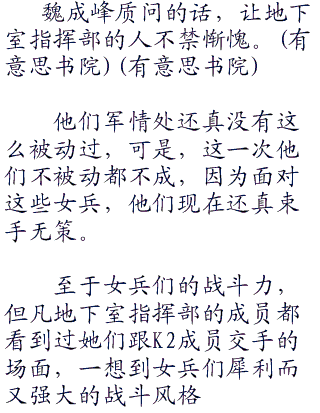 魏成峰质问的话，让地下
室指挥部的人不禁惭愧。（有
意思书院）（有意思书院）
他们军情处还真没有这
么被动过，可是，这一次他
们不被动都不成，因为面对
这些女兵，他们现在还真束
手无策。
至于女兵们的战斗力，
但凡地下室指挥部的成员都
看到过她们跟K2成员交手的
场面，一想到女兵们犀利而
又强大的战斗风格